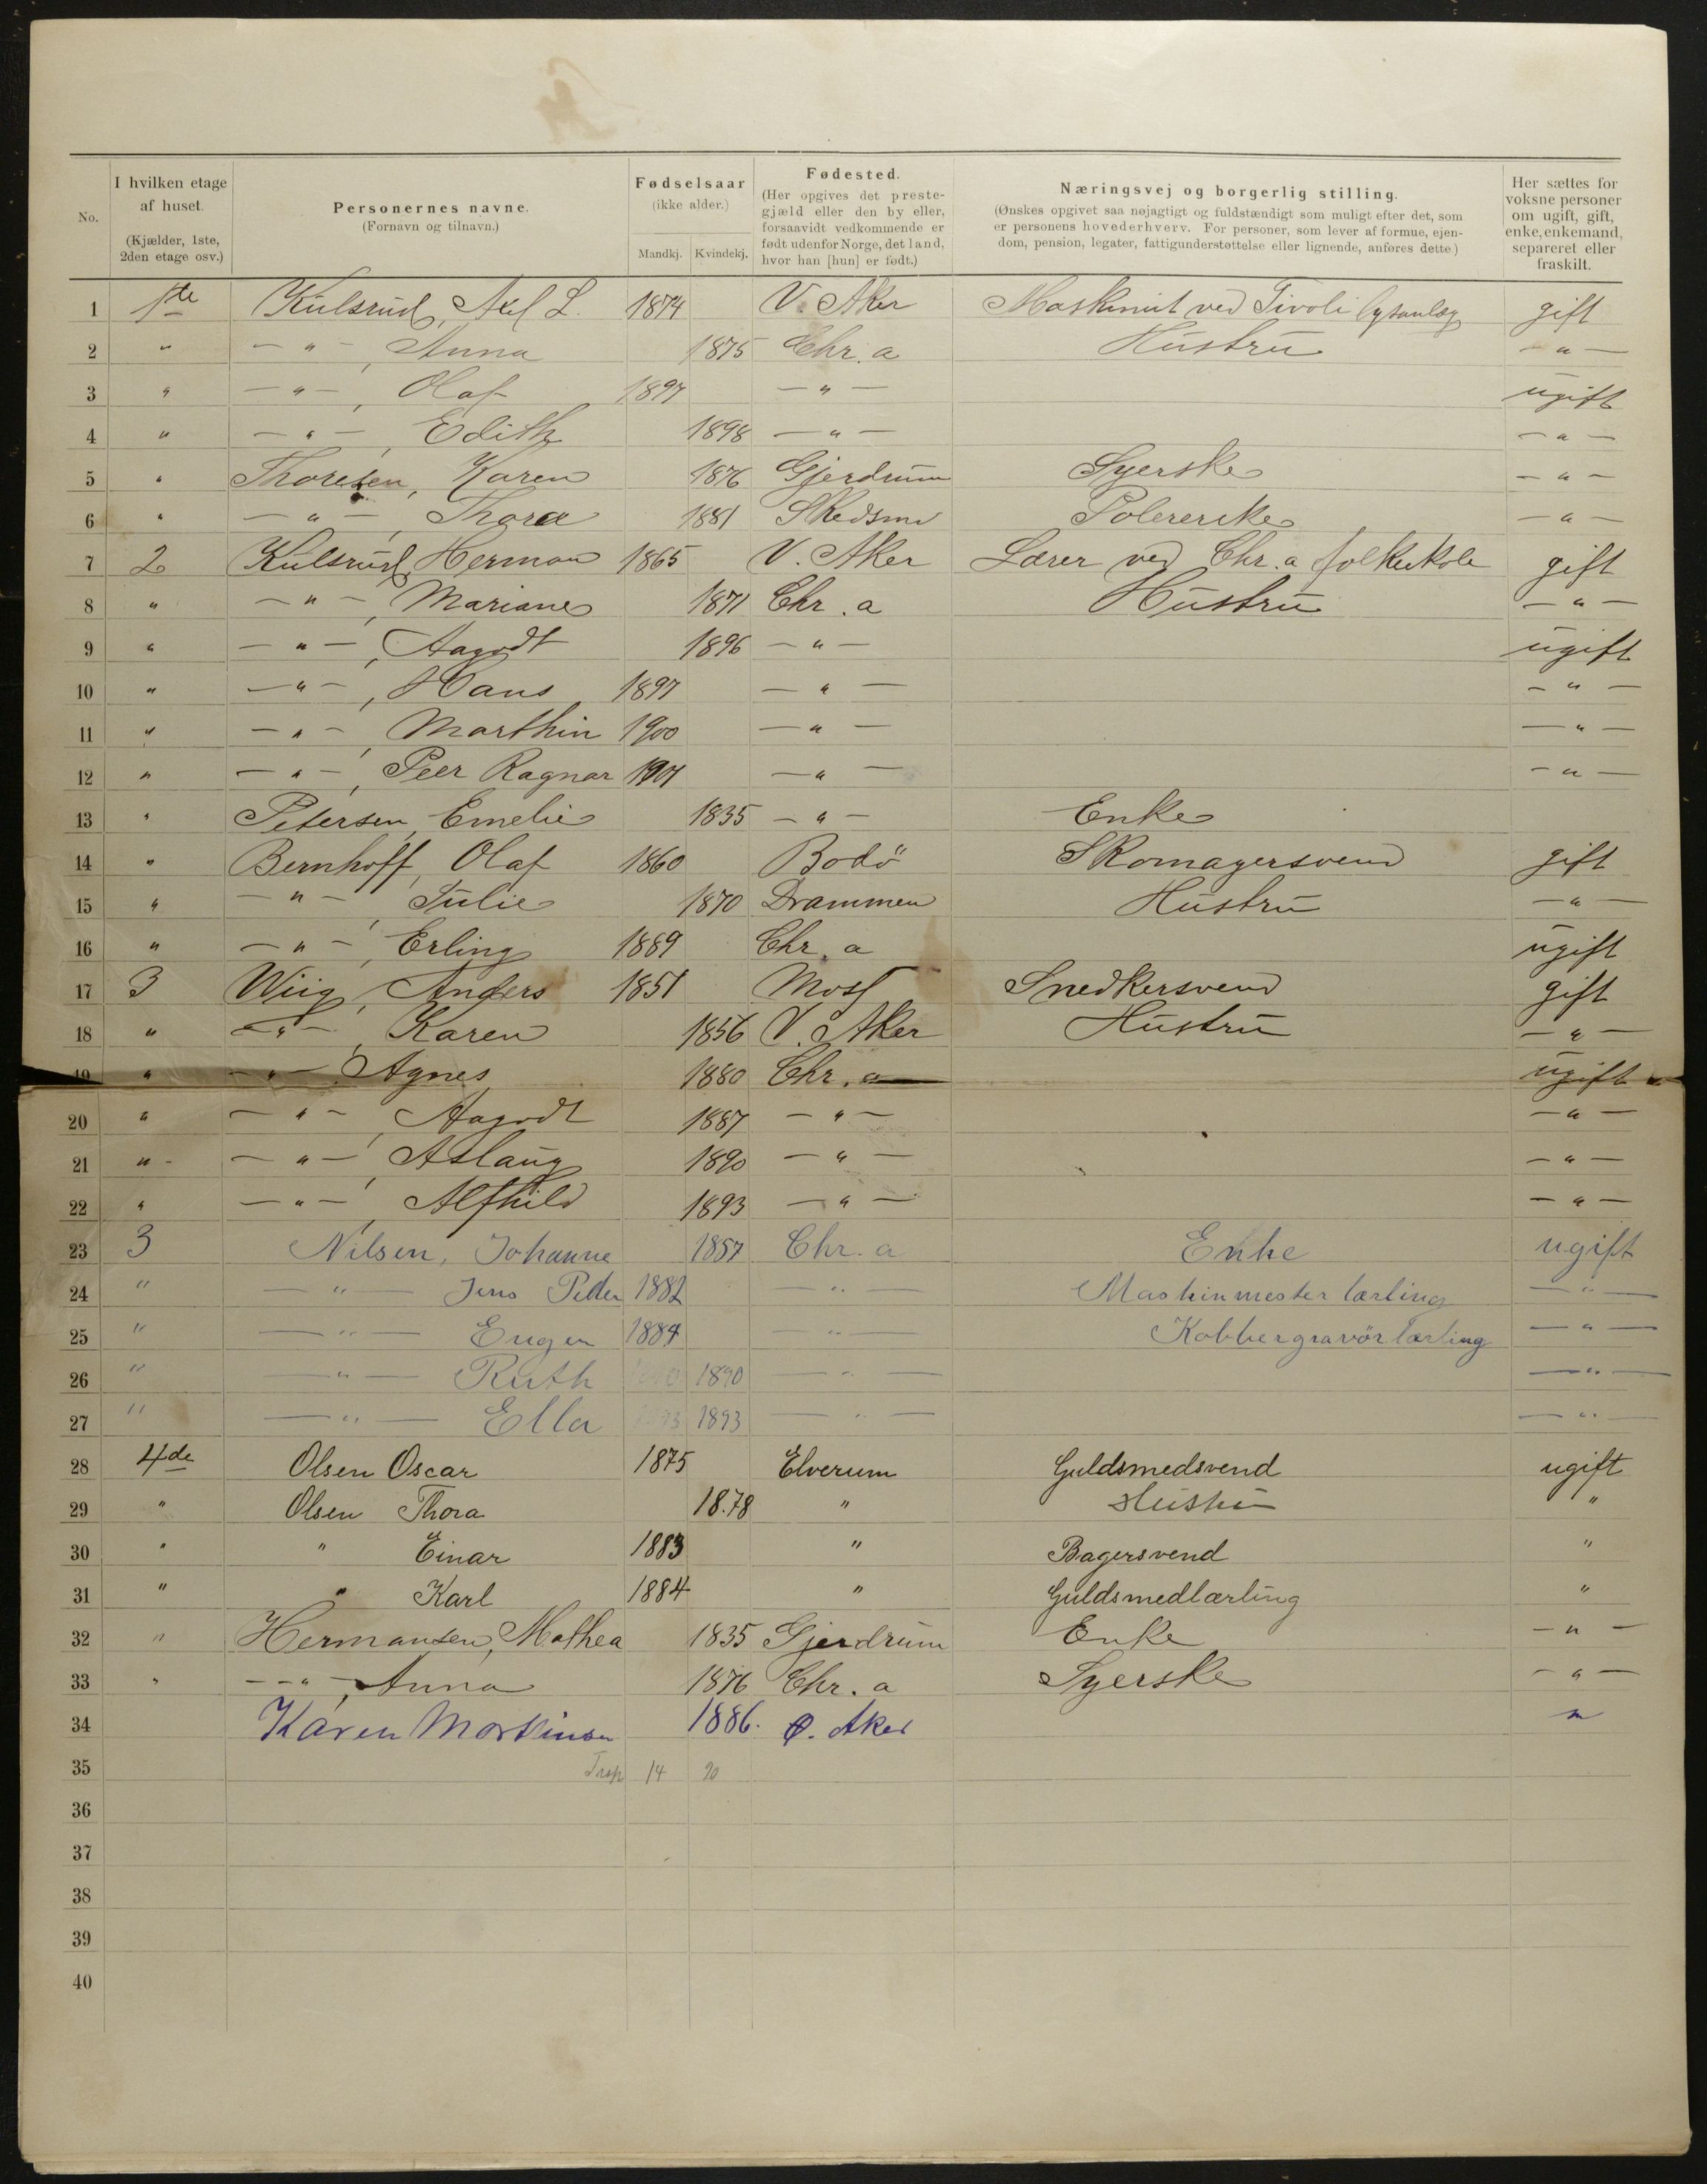 No. | I hvilken etage af huset. (Kjælder, 1ste, 2den etage osv.) | Personernes navne. (Fornavn og tilnavn.) | Fødselsaar (ikke alder.) Mandkj. Kvindekj. | Fødested. (Her opgives det prestegjæld eller den by eller, forsaavidt vedkommende er født udenfor Norge, det land, hvor han [hun] er født.) | Næringsvej og borgerlig stilling. (Ønskes opgivet saa nøjagtigt og fuldstændigt som muligt efter det, som er personens hovederhverv. For personer, som lever af formue, ejendom, pension, legater, fattigunderstøttelse eller lignende, anføres dette) | Her sættes for voksne personer om ugift, gift, enke, enkemand, separeret eller fraskilt.
1 1ste Kulsrud, Axel L. 1874 V. Aker Maskinist ved Tivoli lysanlæg gift
2 " — " — , Anna 1875 Chr. a Hustru — " —
3 " — " — , Olaf 1897 — " — ugift
4 " — " — , Edith 1898 — " — — " —
5 " Thoresen, Karen 1876 Gjerdrum Syerske — " —
6 " — " — , Thora 1881 Skedsmo Polererske — " —
7 2 Kulsrud, Herman 1865 V. Aker Lærer ved Chr. a folkeskole gift
8 " — " — , Mariane 1871 Chr. a Hustru — " —
9 " — " — , Aagodt 1896 — " — ugift
10 " — " — , Hans 1897 — " — — " —
11 " — " — , Marthin 1900 — " — — " —
12 " — " — , Peer Ragnar 1901 — " — — " —
13 " Petersen, Emelie 1835 — " — Enke
14 " Bernhoff, Olaf 1860 Bodö Skomagersvend gift
15 " — " — , Julie 1870 Drammen Hustru — " —
16 " — " — , Erling 1889 Chr. a ugift
17 3 Wiig, Anders 1851 Moss Snedkersvend gift
18 " — " — , Karen 1856 V. Aker Hustru — " —
19 " — " — , Agnes 1880 Chr. a ugift
20 " — " — , Aagodt 1887 — " — — " —
21 " — " — , Aslaug 1890 — " — — " —
22 " — " — , Alfhild 1893 — " — — " —
23 3 Nilsen, Johanne 1857 Chr. a Enke ugift
24 " — " — Jens Peder 1882 — " — Maskinmester lærling — " —
25 " — " — Eugen 1884 — " — Kobbergravör lærling — " —
26 " — " — Ruth 1890 — " — — " —
27 " — " — Ella 1893 — " — — " —
28 4de Olsen Oscar 1875 Elverum Guldsmedsvend ugift
29 " Olsen Thora 18.78 " Hustru "
30 " " Einar 1883 " Bagersvend "
31 " " Karl 1884 " Guldsmedlærling "
32 " Hermansen, Mathea 1835 Gjerdrum Enke — " —
33 " — " — , Anna 1876 Chr. a Syerske — " —
34 Karen Mortinsen 1886. Ø. Aker "
35 14 20
36
37
38
39
40